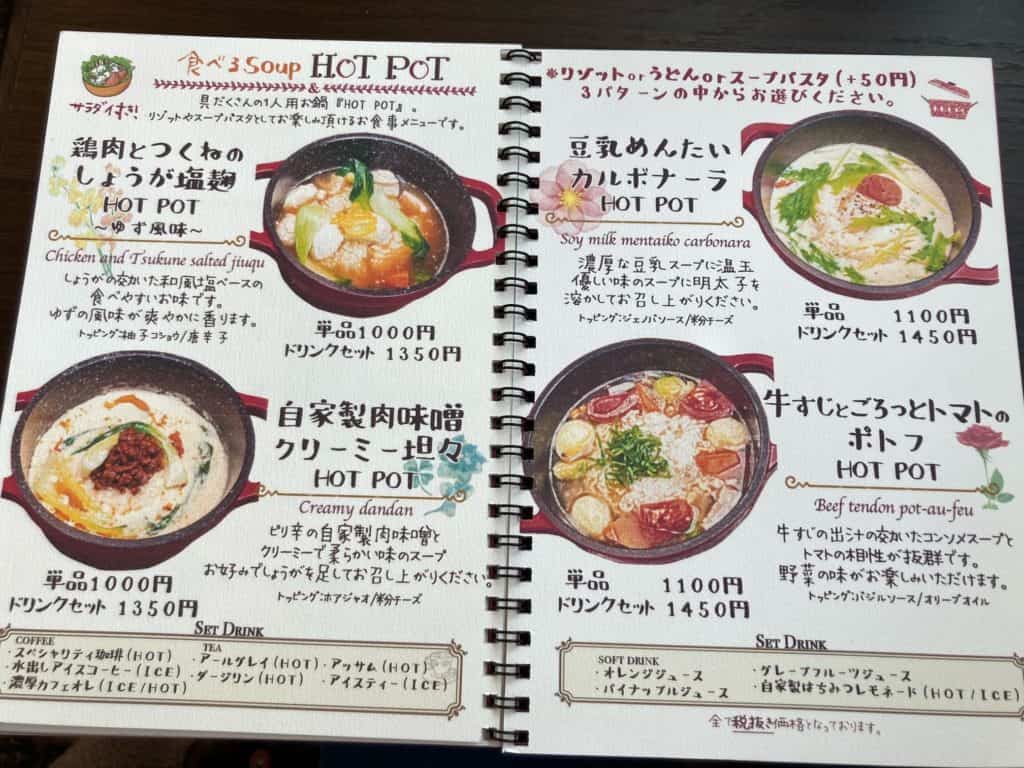 食べるSoup HOT POT
&
サラダ付き!
具だくさんの1人用お鍋『HOT POT』。
リゾットやスープパスタとしてお楽しみ頂けるお食事メニューです。
鶏肉とつくねの
しょうが塩麹
HOT POT
～ゆず風味～
Chicken and Tsukune salted jiuqu
しょうがの効いた和風塩ベースの
食べやすいお味です。
ゆずの風味が爽やかに香ります。
トッピング:柚子コショウ/唐辛子
単品1000円
ドリンクセット 1350円
自家製肉味噌
クリーミー坦々
HOT POT
Creamy dandan
ピリ辛の自家製肉味噌と
クリーミーで柔らかい味のスープ
お好みでしょうがを足してお召し上がりください。
トッピング:ホアジャオ/粉チーズ
単品1000円
ドリンクセット 1350円
SET DRINK
COFFEE
・スペシャリティ珈琲(HOT)
・水出しアイスコーヒー(ICE)
・濃厚カフェオレ(ICE/HOT)
TEA
・アールグレイ(HOT)・アッサム(HOT)
・ダージリン(HOT) ・アイスティー(ICE)
※リゾットorうどんorスープパスタ(+50円)
3パターンの中からお選びください。
豆乳めんたい
カルボナーラ
HOT POT
Soy milk mentaiko carbonara
濃厚な豆乳スープに温玉
優しい味のスープに明太子を
溶かしてお召し上がりください。
トッピング:ジェノバソース/粉チーズ
単品 1100円
ドリンクセット 1450円
牛すじとごろっとトマトの
ポトフ
HOT POT
Beef tendon pot-au-feu
牛すじの出汁の効いたコンソメスープと
トマトの相性が抜群です。
野菜の味がお楽しみいただけます。
トッピング:バジルソース/オリーブオイル
単品 1100円
ドリンクセット 1450円
SET DRINK
SOFT DRINK
・オレンジジュース
・パイナップルジュース
・グレープフルーツジュース
・自家製はちみつレモネード(HOT/ICE)
全て税抜き価格となっております。